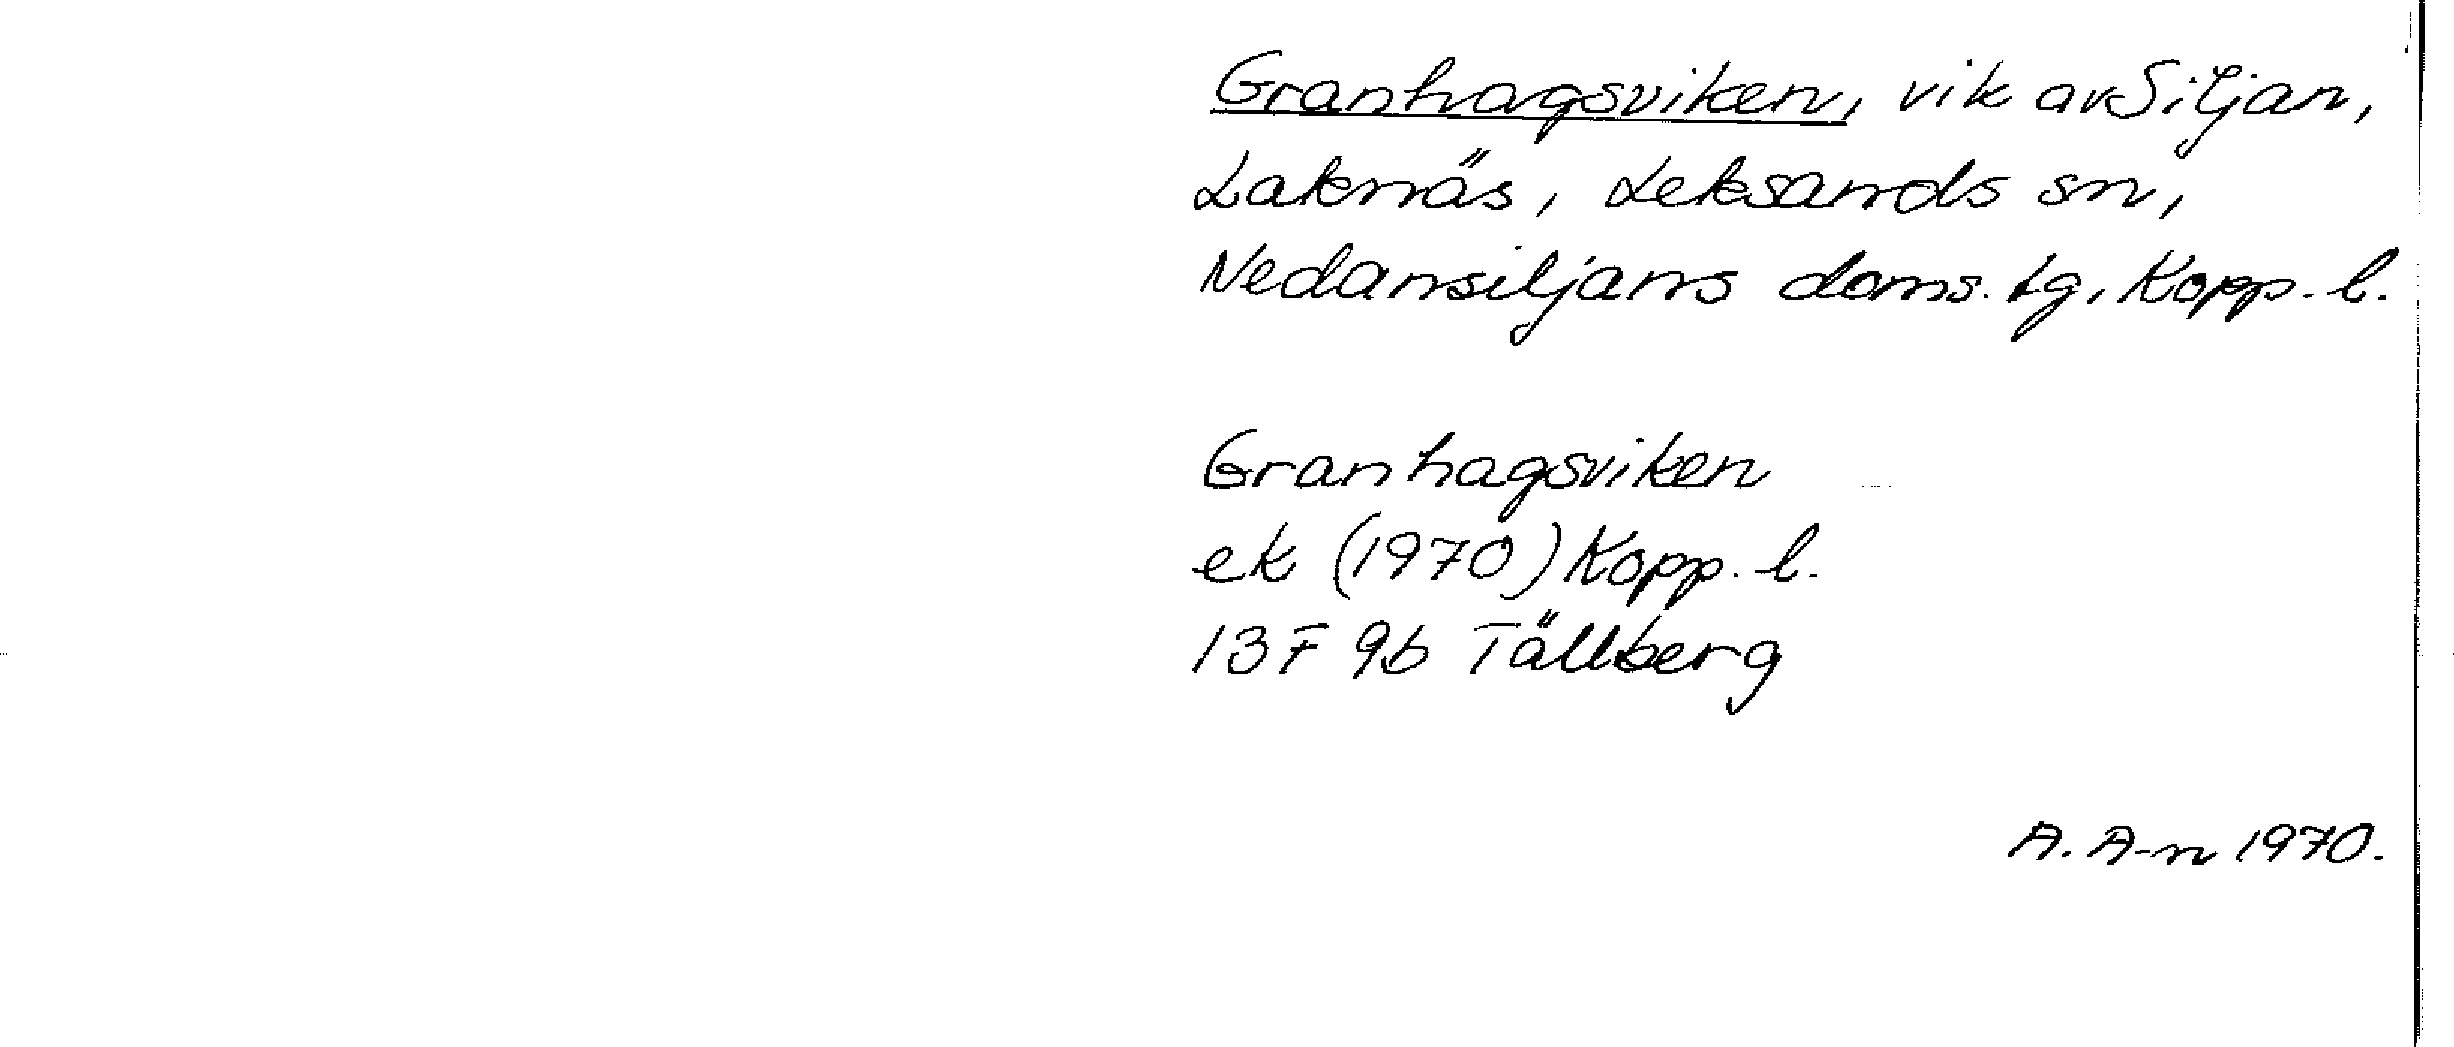 Granhagsviken, vik av Siljan,
Laknäs, Leksands sn,
Nedansiljans doms. tg, Kopp. l.
Granhagsviken
ek (1970) Kopp. l.
13F 9b Tällberg
A. A-n 1970.